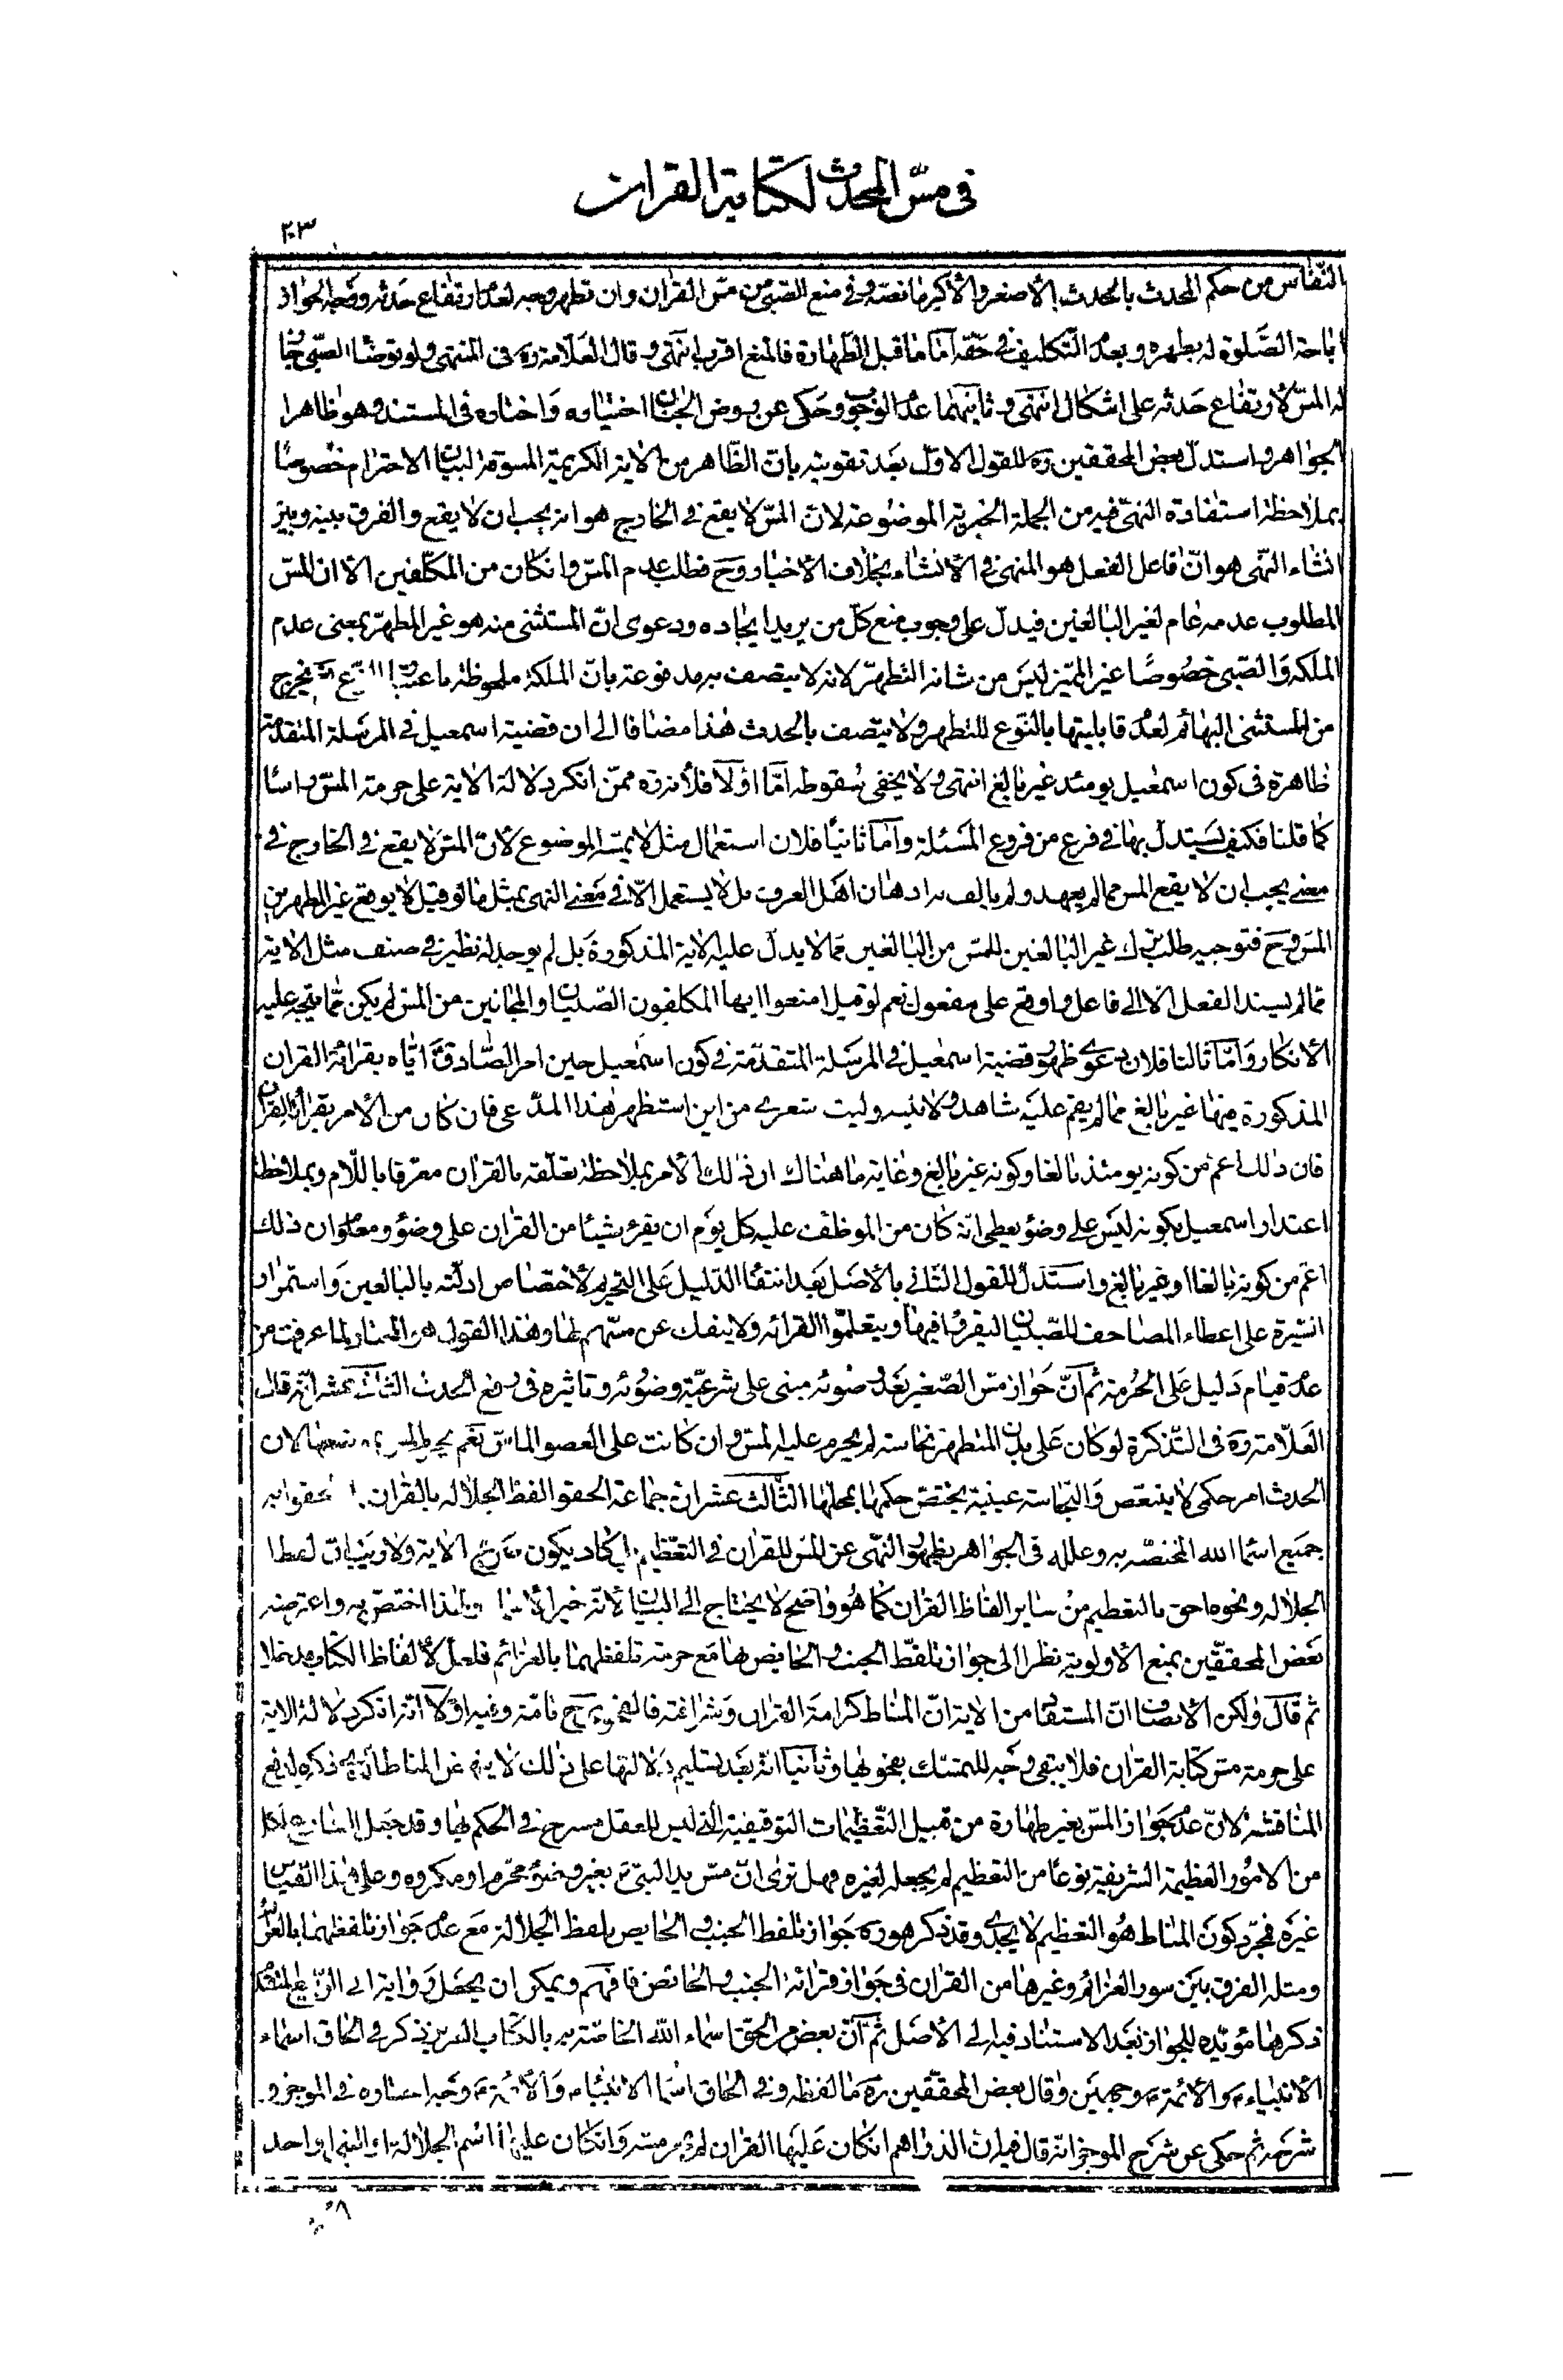 في مس المحدث لكتابة القران
٢٠٣
النفاس من حكم المحدث بالحدث الأصغر والأكبر ما نصه وفي منع الصبي من مس القران وان تطهر وجه لعدم ارتفاع حدثه ووجه الجواز
اباحة الصلوة له بطهره وبعدم التكليف في حقه اما ما قبل الطهارة فالمنع اقرب انتهى وقال العلامة ره في المنتهى ولو توضأ الصبي جاز
له المس لارتفاع حدثه على اشكال انتهى وثانيهما عدم الوجوب وحكى عن روض الجنان اختياره واختاره في المستند وهو ظاهر
الجواهر واستدل بعض المحققين ره للقول الاول بعد تقويته بان الظاهر من الاية الكريمة المسوقة لبيان الاحترام خصوصا
بملاحظة استفادة النهى فيه من الجملة الخبرية الموضوعة لان المس لا يقع في الخارج هو انه يجب ان لا يقع والفرق بينه وبين
انشاء النهى هو ان فاعل الفعل هو المنهى في الأنشاء بخلاف الأخبار وح فطلب عدم المس وانكان من المكلفين الا ان المس
المطلوب عدمه عام لغير البالغين فيدل على وجوب منع كل من يريد ايجاده ودعوى ان المستثنى منه هو غير المطهر بمعنى عدم
الملكة والصبي خصوصا غير المميز ليس من شانه التطهر لانه لا يتصف به مدفوعة بان الملكة ملحوظة باعتبار النوع فيخرج
من المستثنى البهائم لعدم قابليتها بالنوع للتطهر ولا يتصف بالحدث هذا مضافا الى ان قضية اسمعيل في المرسلة المتقدمة
ظاهرة في كون اسمعيل يومئذ غير بالغ انتهى ولا يخفى سقوطه اما اولا فلأنه ره ممن انكر دلالة الاية على حرمة المس راسا
كما قلنا فكيف يستدل بها في فرع من فروع المسئلة واما ثانيا فلان استعمال مثل لا يمسه الموضوع لأن المس لا يقع في الخارج في
معنى يجب ان لا يقع المس مما لم يعهد ولم يالف به اذهان اهل العرف بل لا يستعمل الا في معنى النهى بمثل ما لو قيل لا يوقع غير المطهرين
المس وح فتوجيه طلب ترك غير البالغين للمس من البالغين مما لا يدل عليه الاية المذكورة بل لم يوجد له نظير في صنف مثل الاية
مما لم يسند الفعل الا الى فاعل واوقع على مفعول نعم لو قيل امنعوا ايها المكلفون الصبيان او المجانين من المس لم يكن مما يتجه عليه
الأنكار واما ثالثا فلان دعوى ظهور قضية اسمعيل في المرسلة المتقدمة في كون اسمعيل حين امر الصادق ع اياه بقرائة القران
المذكورة فيها غير بالغ مما لم يقم عليه شاهد ولا بينة وليت شعرى من اين استظهر هذا المدعى فان كان من الأمر بقرائة القران
فان ذلك اعم من كونه يومئذ بالغا وكونه غير بالغ وغاية ما هناك ان ذلك الأمر بملاحظة تعلقه بالقران معرفا باللام وبملاحظة
اعتذار اسمعيل بكونه ليس على وضؤ يعطى انه كان من الموظف عليه كل يوم ان يقرء شيئا من القران على وضؤ ومعلوم ان ذلك
اعم من كونه بالغا او غير بالغ واستدل للقول الثاني بالأصل بعد انتفاء الدليل على التحريم لأختصاص ادلته بالبالغين واستمرار
السيرة على اعطاء المصاحف للصبيان ليقرؤا فيها ويتعلموا القرائة ولا ينفك عن مسهم لها وهذا القول هو المختار لما عرفت من
عدم قيام دليل على الحرمة ثم ان جواز مس الصغير بعد وضوئه مبنى على شرعية وضوئه وتاثيره في رفع الحدث الثاني عشر انه قال
العلامة ره في التذكرة لو كان على بدن المتطهر نجاسة لم يحرم عليه المس وان كانت على العضو الماس نعم يحرم المس بموضعها لان
الحدث امر حكمي لا يتبعض والنجاسة عينية يختص حكمها بمحلها الثالث عشر ان جماعة الحقوا لفظ الجلالة بالقران والحقوا به
جميع اسماء الله المختصة به وعلله في الجواهر بظهور النهى عن المس للقران في التعظيم بل كاد يكون صريح الاية ولا ريب ان لفظ
الجلالة ونحوه احق بالتعظيم من ساير الفاظ القران كما هو واضح لا يحتاج الى البيان لأنه خير الأسماء ولهذا اختص به واعترضه
بعض المحققين بمنع الأولوية نظرا الى جواز تلفظ الجنب والحايض بها مع حرمة تلفظهما بالعزائم فلعل لألفاظ الكتاب مدخلا
ثم قال ولكن الأنصاف ان المستفاد من الاية ان المناط كرامة القران وشرافته فالفحوى ح تامة وفيه اولا انه انكر دلالة الاية
على حرمة مس كتابة القران فلا يبقى وجه للتمسك بفحواها وثانيا انه بعد تسليم دلالتها على ذلك لا يغني عن المناط الذي ذكره لدفع
المناقشة لان عدم جواز المس بغير طهارة من قبيل التعظيمات التوقيفية التى ليس للعقل مسرح في الحكم بها وقد جعل الشارع لكل
من الامور العظيمة الشريفة نوعا من التعظيم لم يجعله لغيره فهل ترى ان مس يد النبي ص بغير وضوء محرم او مكروه وعلى هذا القياس
غيره فمجرد كون المناط هو التعظيم لا يجدى وقد ذكر هو ره جواز تلفظ الجنب والحايض بلفظ الجلالة مع عدم جواز تلفظهما بالعزائم
ومثله الفرق بين سور العزائم وغيرها من القران في جواز قرائة الجنب والحائض فافهم ويمكن ان يجعل رواية ابى الربيع المتقدم
ذكرها مؤيدة للجواز بعد الاستناد فيه الى الأصل ثم ان بعض من الحق اسماء الله الخاصة به بالكتاب العزيز ذكر في الحاق اسماء
الأنبياء ع والأئمة ع وجهين وقال بعض المحققين ره ما لفظه وفي الحاق اسماء الانبياء ع والأئمة ع وجه اختاره في الموجز و
شرحه ثم حكى عن شرح الموجز انه قال فيه ان الدراهم انكان عليها القران لم يحرم مسه وانكان عليها اسم الجلالة او النبي او احد